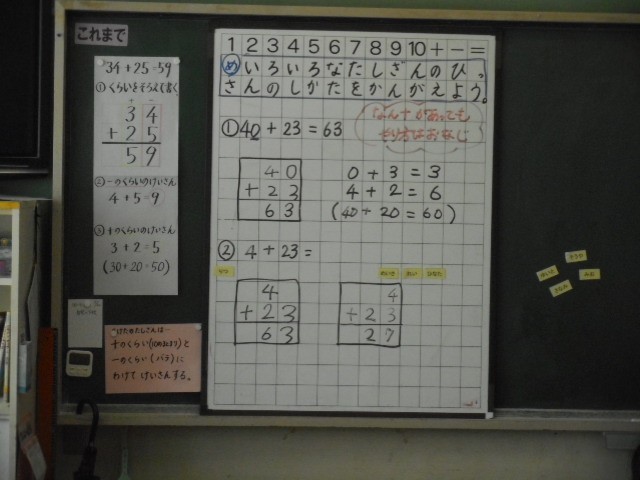 これまで
34+25=59
①くらいをそろえて書く
3 4
+ 2 5
5 9
②一のくらいのけいさん
4+5=9
③十のくらいのけいさん
3+2=5
(30+20=50)
2けたのたしざんは…
十のくらい(10のまとまり)と
一のくらい(バラ)に
わけてけいさんする。
1 2 3 4 5 6 7 8 9 10 + − =
め いろいろなたしざんのひっ
さんのしかたをかんがえよう。
①40+23=63
4 0
+ 2 3
6 3
0+3=3
4+2=6
(40+20=60)
②4+23=
4
+ 2 3
6 3
4
+ 2 3
2 7